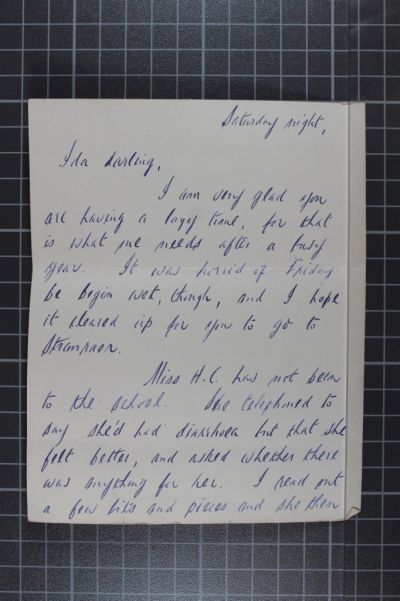 Saturday night,
Ida darling,
I am very glad you
are having a lazy time, for that
is what one needs after a busy
year. It was horrid of Friday
be begin wet, though, and I hope
it cleared up for you to go to
Miss H.C. has not been
to the school. She telephoned to
say she'd had diarrhoea but that she
felt better, and asked whether there
was anything for her. I read out
a few bits and pieces and she then